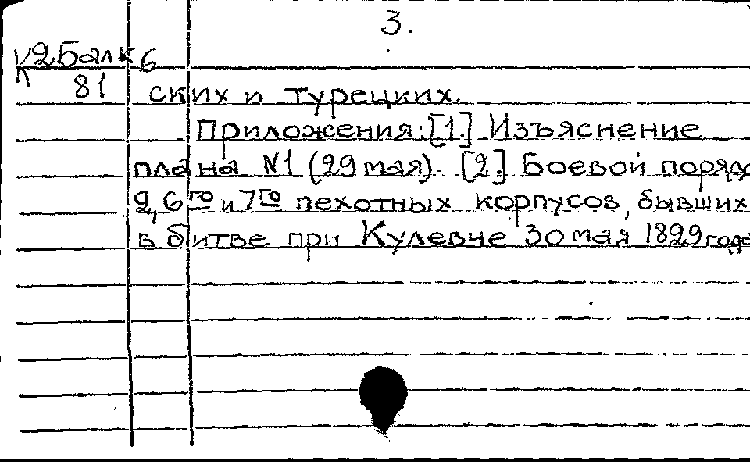 3.
К2Балк 6
81
ских и турецких.
Приложения: [1.] Изъяснение
плана №1 (29 мая). [2.] Боевой порядо
2, 6го и 7го пехотных корпусов, бывших
в битве при Кулевче 30 мая 1829 года